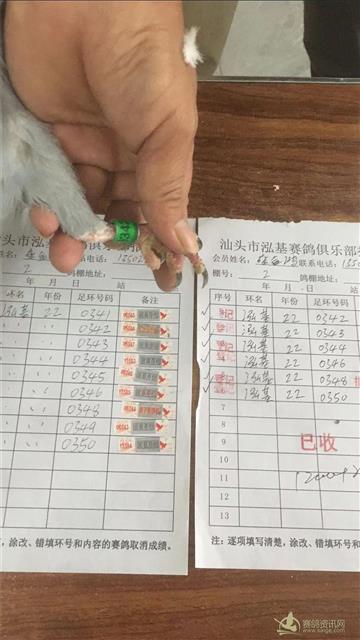 汕头市泓基赛鸽俱乐部
联系电话:
2
鸽棚地址:
年 月 日 站
环名 年份 足环号码 备注
泓基 22 0341
〃 〃 0342
〃 〃 0343
〃 〃 0344
〃 〃 0345
〃 〃 0346
〃 〃 0348
〃 〃 0349
〃 〃 0350
,涂改、错填环号和内容的赛鸽取消成绩。
汕头市泓基赛鸽俱乐部
会员姓名:
联系电话:
棚号: 2 鸽棚地址:
年 月 日 站
序号 环名 年份 足环号码
登记 泓基 22 0342
泓基 22 0343
登记 泓基 22 0344
泓基 22 0346
登记 泓基 22 0348
泓基 22 0350
7
8
9
10
11
12
13
已收
注:逐项填写清楚,涂改、错填环号和
赛鸽资讯网
www.saige.com